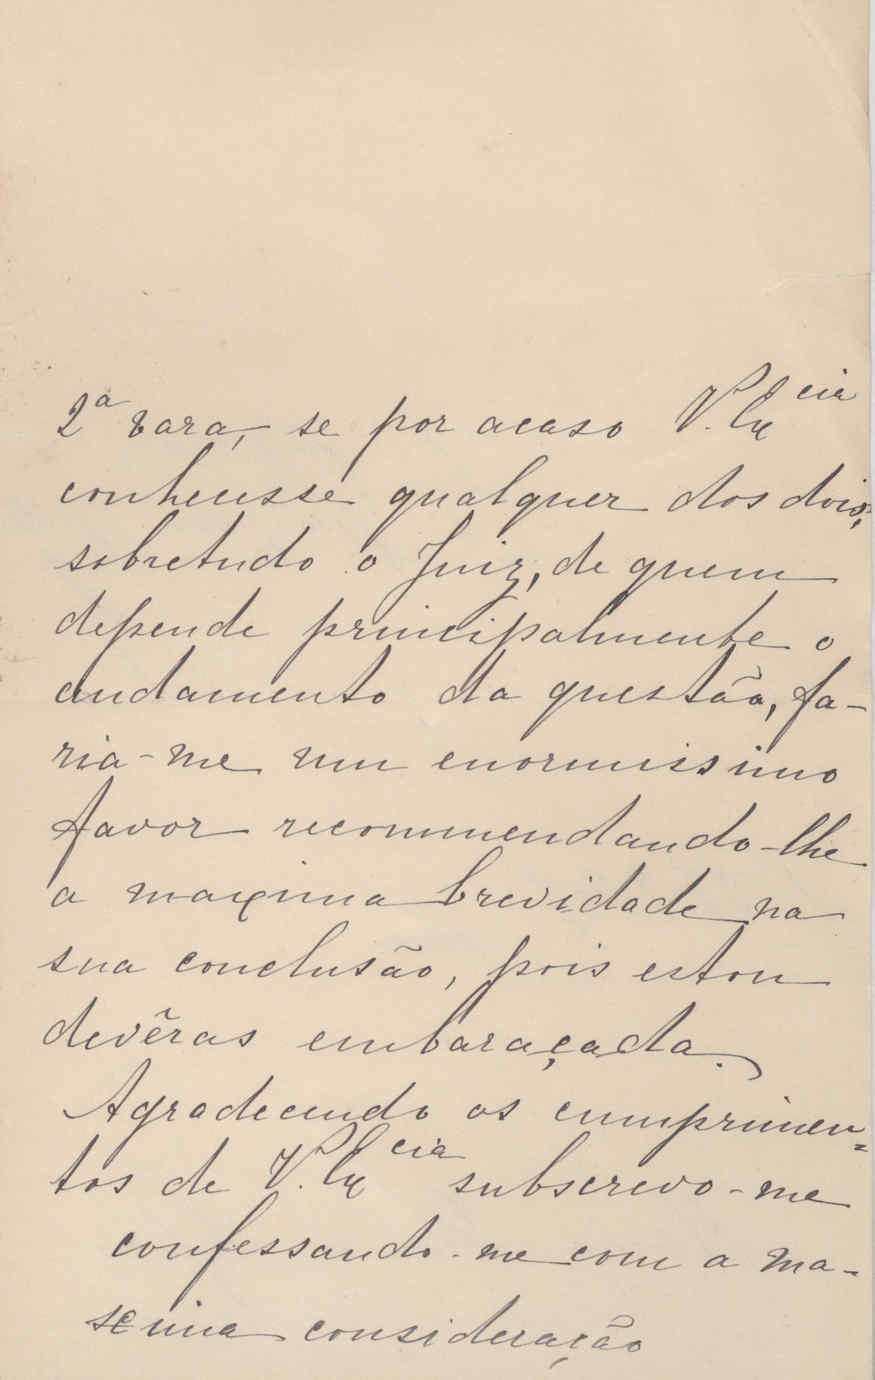 2ª vara, se por acaso V. Ex cia
conhecesse qualquer dos dois,
sobretudo o Juiz, de quem
depende principalmente o
andamento da questão, fa-
ria-me um enormissimo
favor recommendando-lhe
a maxima brevidade na
sua conclusão, pois estou
devêras embaraçada.
Agradecendo os cumprimen=
tos de V. Ex cia subscrevo-me
confessando-me com a ma-
xima consideração